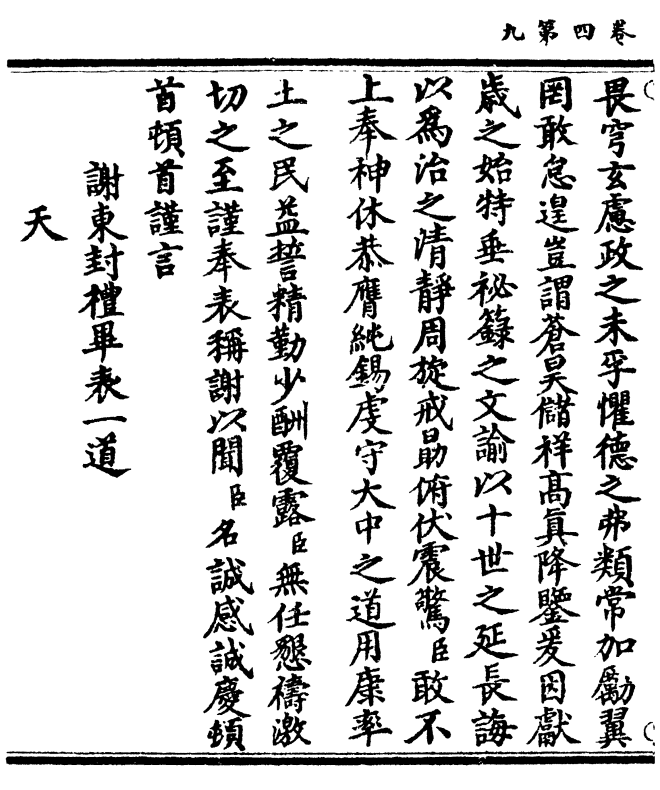 卷四第九
畏穹玄慮政之未孚懼德之弗類常加勵翼
罔敢怠遑豈謂蒼昊儲祥高真降鑒爰因獻
歲之始特垂祕籙之文諭以十世之延長誨
以為治之清靜周旋戒勗俯伏震驚臣敢不
上奉神休恭膺純錫虔守大中之道用康率
土之民益誓精勤少酬覆露臣無任懇禱激
切之至謹奉表稱謝以聞臣名誠感誠慶頓
首頓首謹言
謝東封禮畢表一道
天